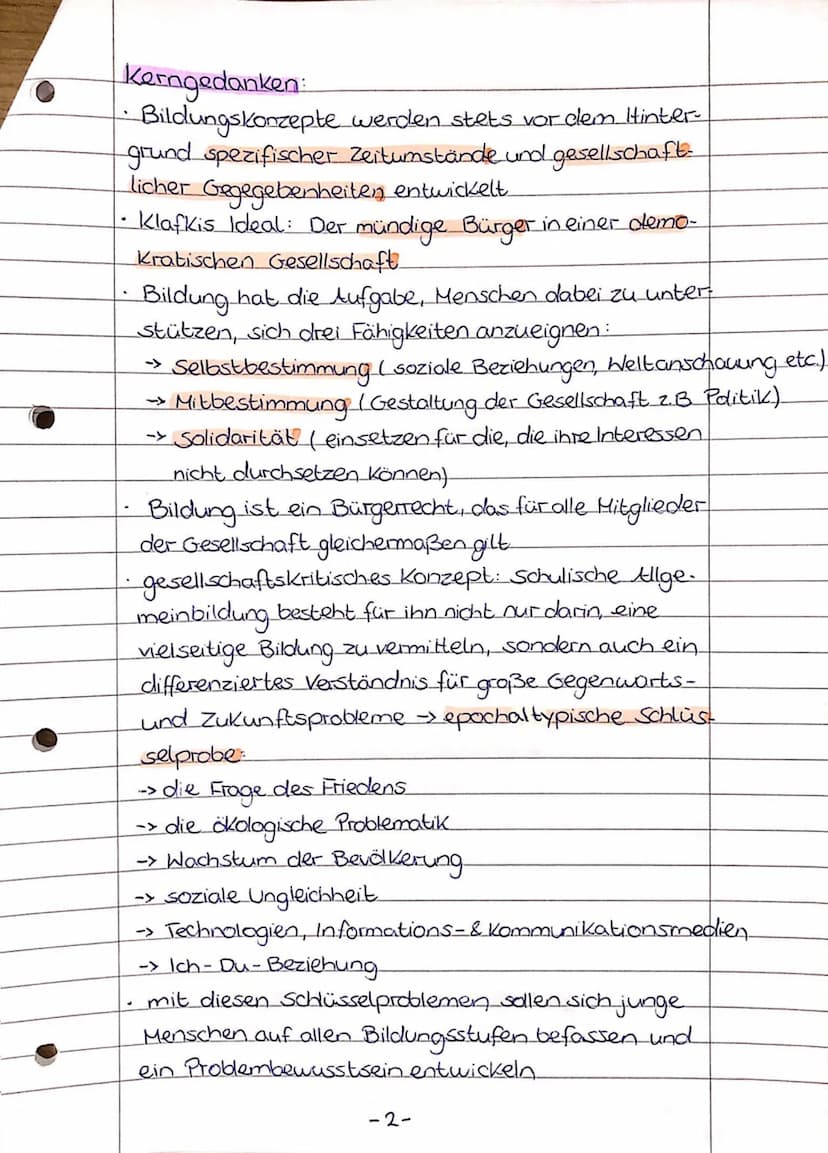 Kerngedanken:
· Bildungskonzepte werden stets vor dem Hinter-
grund spezifischer Zeitumstände und gesellschaft-
licher Gegegebenheiten entwickelt
· Klafkis Ideal: Der mündige Bürger in einer demo-
kratischen Gesellschaft
· Bildung hat die Aufgabe, Menschen dabei zu unter-
stützen, sich drei Fähigkeiten anzueignen:
-> Selbstbestimmung (soziale Beziehungen, Weltanschauung etc.)
-> Mitbestimmung (Gestaltung der Gesellschaft z.B Politik)
-> Solidarität (einsetzen für die, die ihre Interessen
nicht durchsetzen können)
· Bildung ist ein Bürgerrecht, das für alle Mitglieder
der Gesellschaft gleichermaßen gilt
· gesellschaftskritisches Konzept: Schulische Allge-
meinbildung besteht für ihn nicht nur darin, eine
vielseitige Bildung zu vermitteln, sondern auch ein
differenziertes Verständnis für große Gegenwarts-
und Zukunftsprobleme -> epochaltypische Schlüs-
selprobe:
-> die Frage des Friedens
-> die ökologische Problematik
-> Wachstum der Bevölkerung
-> soziale Ungleichheit
-> Technologien, Informations-& Kommunikationsmedien
-> Ich-Du-Beziehung
· mit diesen Schlüsselproblemen sollen sich junge
Menschen auf allen Bildungsstufen befassen und
ein Problembewusstsein entwickeln
-2-